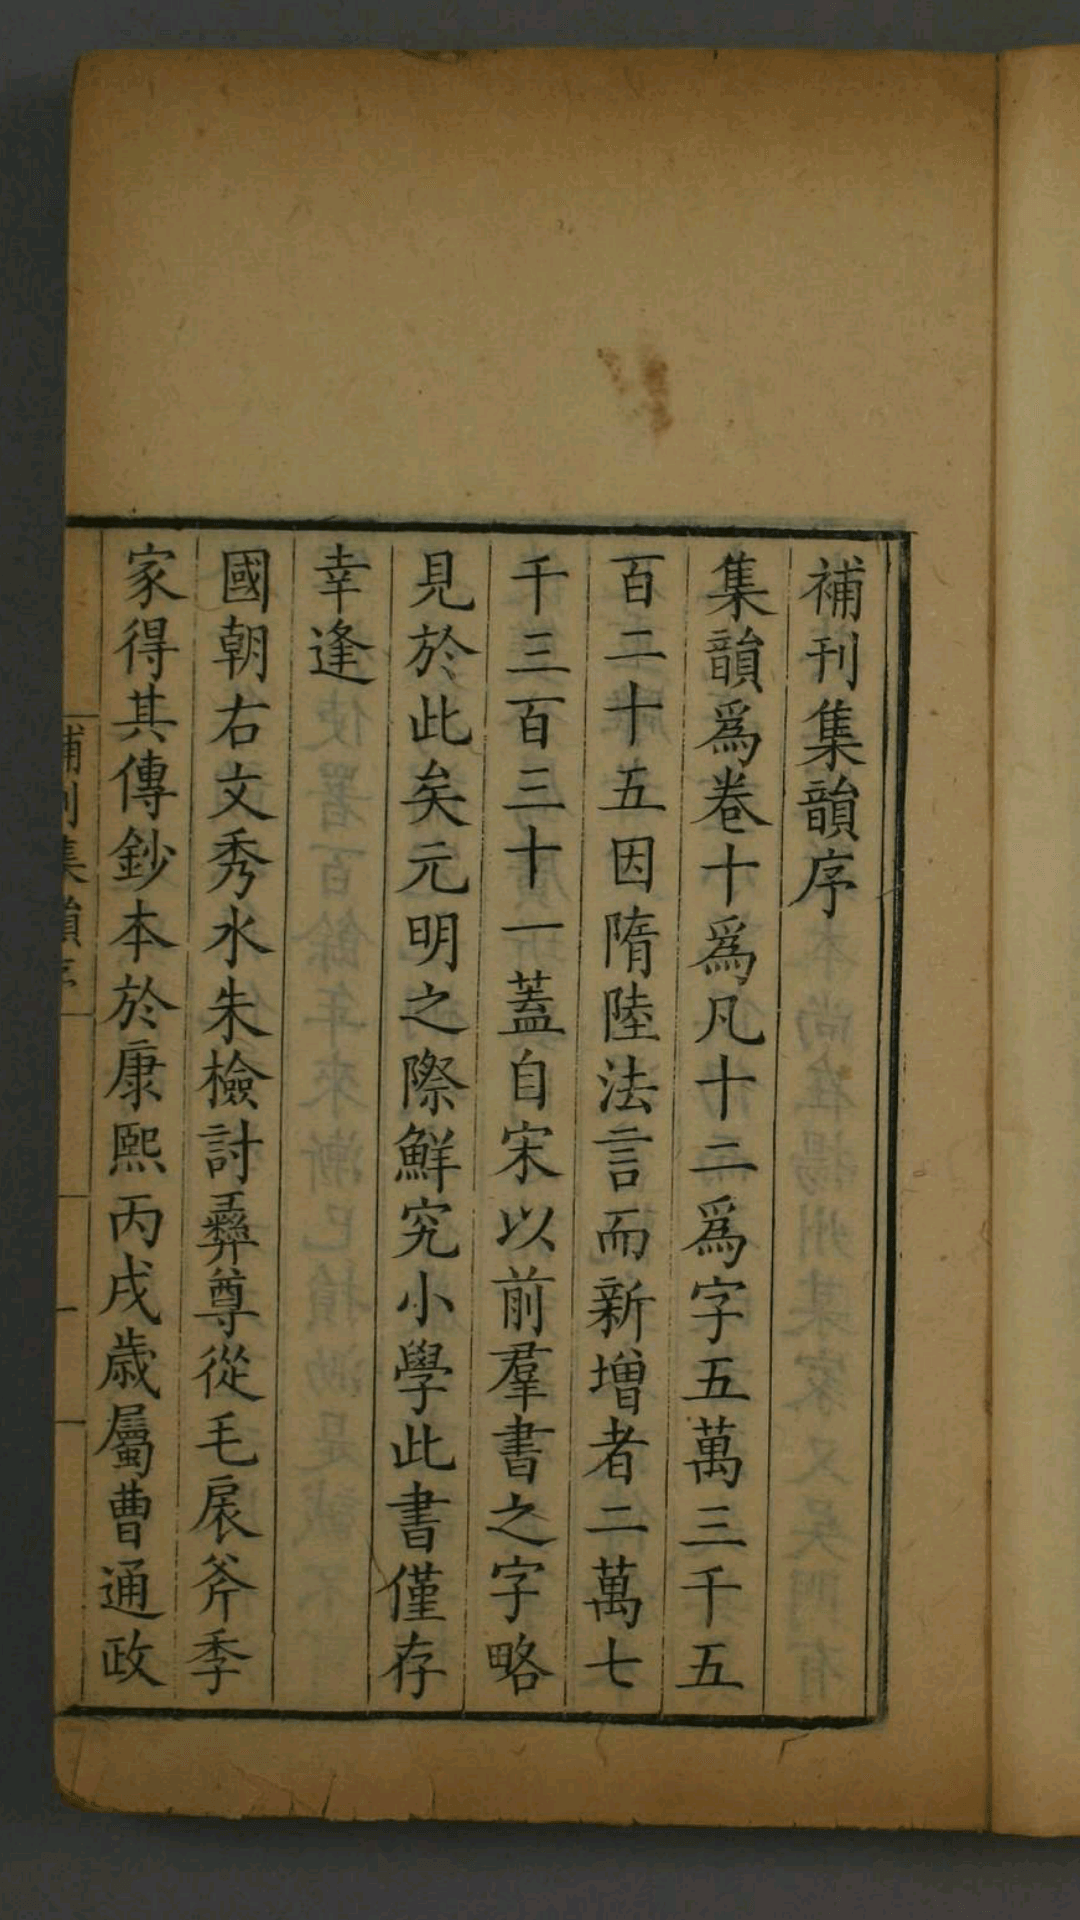 補刊集韻序
集韻爲卷十爲凡十二爲字五萬三千五
百二十五因隋陸法言而新增者二萬七
千三百三十一蓋自宋以前羣書之字略
見於此矣元明之際鮮究小學此書僅存
幸逢
國朝右文秀水朱檢討彝尊從毛扆斧季
家得其傳鈔本於康熙丙戌歲屬曹通政
補刊集韻序